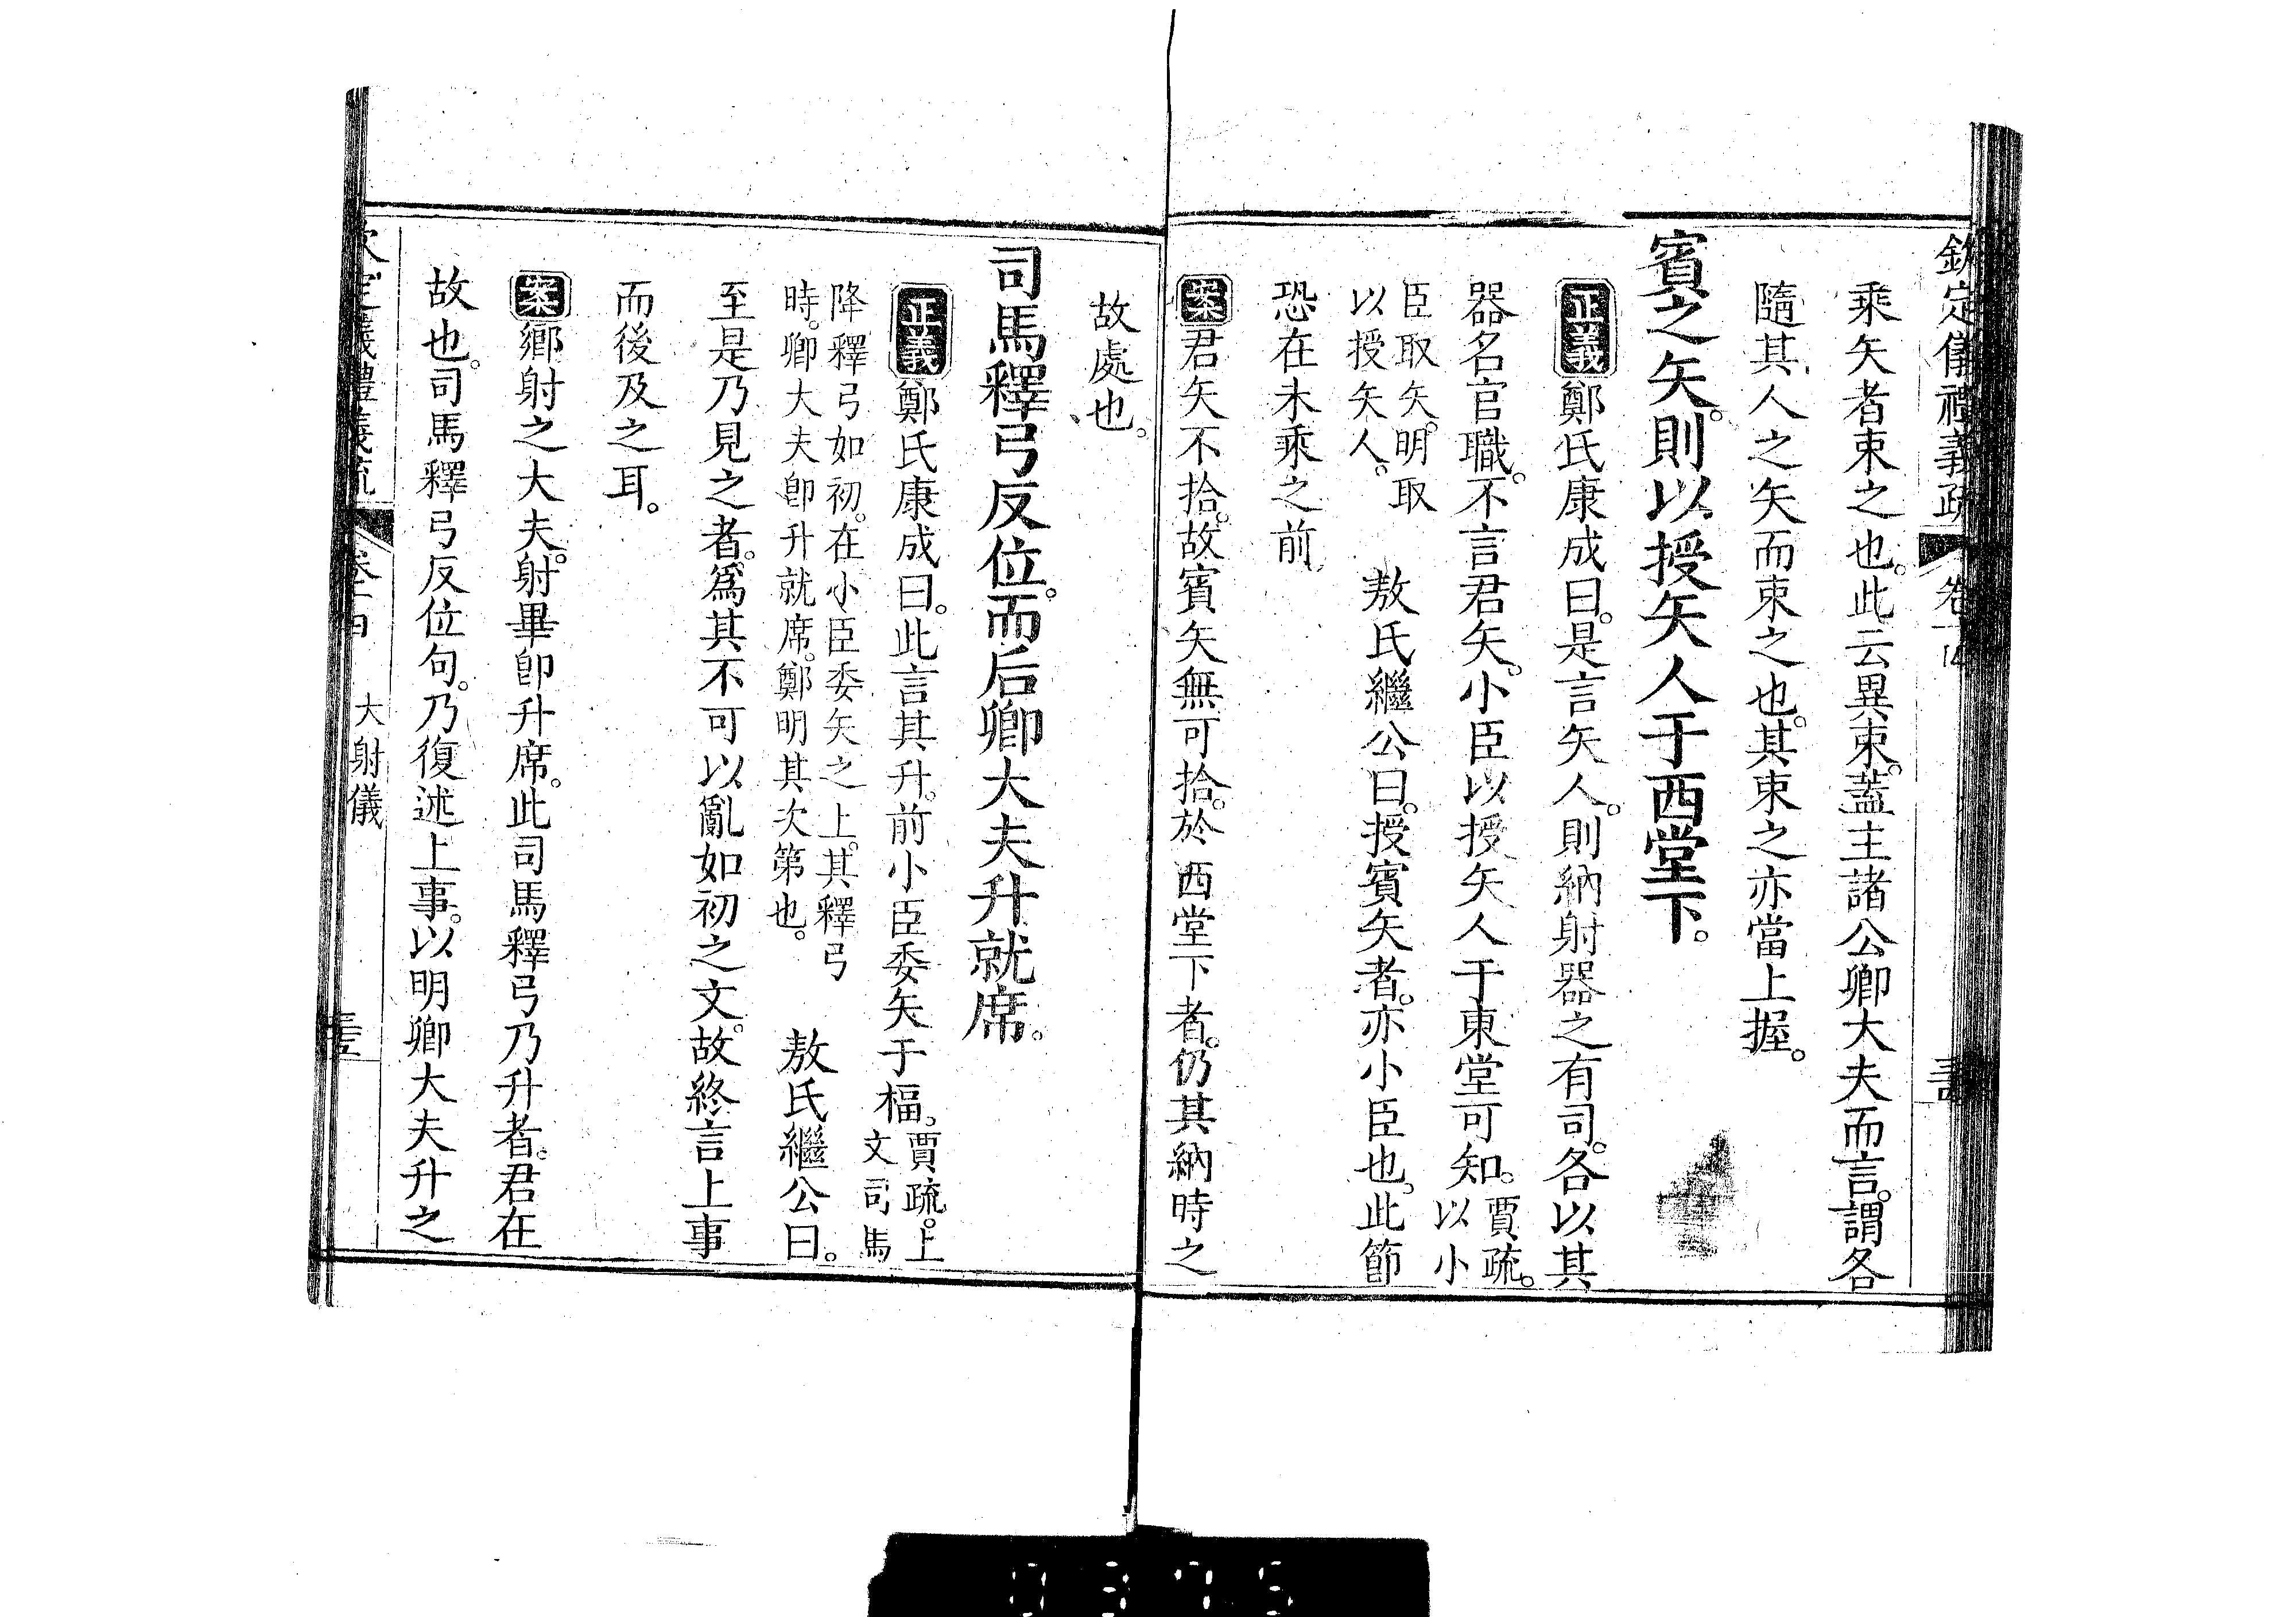 欽定儀禮義疏 卷十四
乘矢者束之也。此云異束。蓋主諸公卿大夫而言。謂各
隨其人之矢而束之也。其束之亦當上握。
賓之矢。則以授矢人于西堂下。
正義鄭氏康成曰。是言矢人。則納射器之有司。各以其
器名官職。不言君矢。小臣以授矢人于東堂可知。賈疏。以小
臣取矢。明取以授矢人。 敖氏繼公曰。授賓矢者。亦小臣也。此節
恐在未乘之前
案君矢不拾。故賓矢無可拾。於西堂下者。仍其納時之
故處也。
司馬釋弓反位。而后卿大夫升就席。
正義鄭氏康成曰。此言其升。前小臣委矢于楅。賈疏。上文司馬
降釋弓如初。在小臣委矢之上。其釋弓時。卿大夫卽升就席。鄭明其次第也。 敖氏繼公曰。
至是乃見之者。爲其不可以亂如初之文。故終言上事
而後及之耳。
案鄉射之大夫。射畢卽升席。此司馬釋弓乃升者。君在
故也。司馬釋弓反位句。乃復述上事。以明卿大夫升之
大射儀
0375